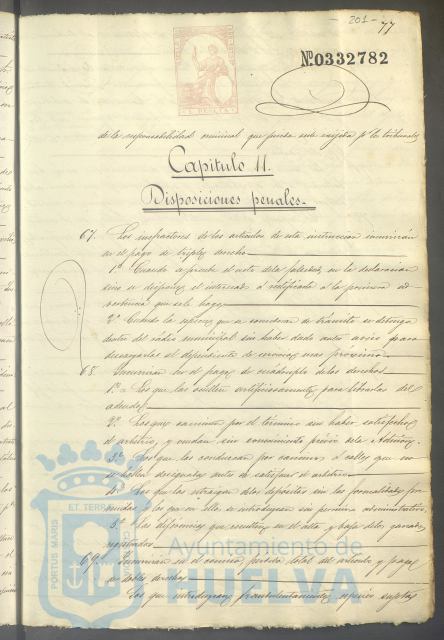 201 77
Nº 0332782
de la responsabilidad criminal que pueda serle exigida p.r los tribunales
Capitulo 11.
Disposiciones penales.
67. Los infractores de los articulos de esta instruccion incurrirán
en el pago de triples derechos
1º Cuando se pruebe el acto de la falsedad en la declaracion
sino se dispone el interesado á rectificarla á la primera
advertencia que se le haga
2º Cuando la especie que se considera de tránsito se detenga
dentro del radio municipal sin haber dado antes aviso para
descargarlas al dependiente de servicio mas próximo
68. Incurrirán en el pago de cuadruples de los derechos
1º Los que las oculten artificiosamente para librarlas del
adeudo
2º Los que caminen por el término sin haber satisfecho
el arbitrio, y vendan sin conocimiento previo de la Admon.
3º Los que las conduzcan por caminos ó calles que no
se hallen designadas antes de satisfacer el arbitrio
4º Los que las extraigan de los depósitos sin las formalidades
y los que en ellos introduzcan sin permiso administrativo
5º Las diferencias que resulten en el alta y baja de los ganados
registrados
69. Incurrirán en el comiso, perdida total del articulo y pago
de dobles derechos
Los que introduzcan fraudulentamente especies sujetas
PORTUS MARIS ET TERRAE CUSTODIA
Ayuntamiento de
HUELVA